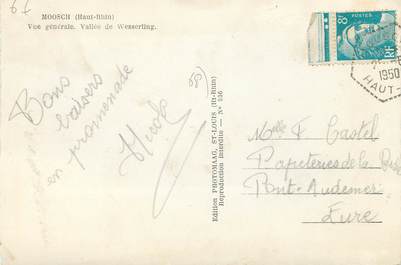 67
MOOSCH (Haut-Rhin)
Vue générale. Vallée de Wesserling.
Bons
baisers
en promenade
Nicole
Edition PHOTOMAAG, ST-LOUIS (Ht-Rhin)
Reproduction interdite — No 136
POSTES
RF
1950
HAUT-
Melle F Castel
Papeteries de la
Pont-Audemer
Eure